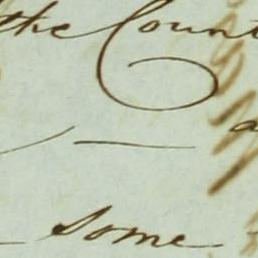 the Count
a
some